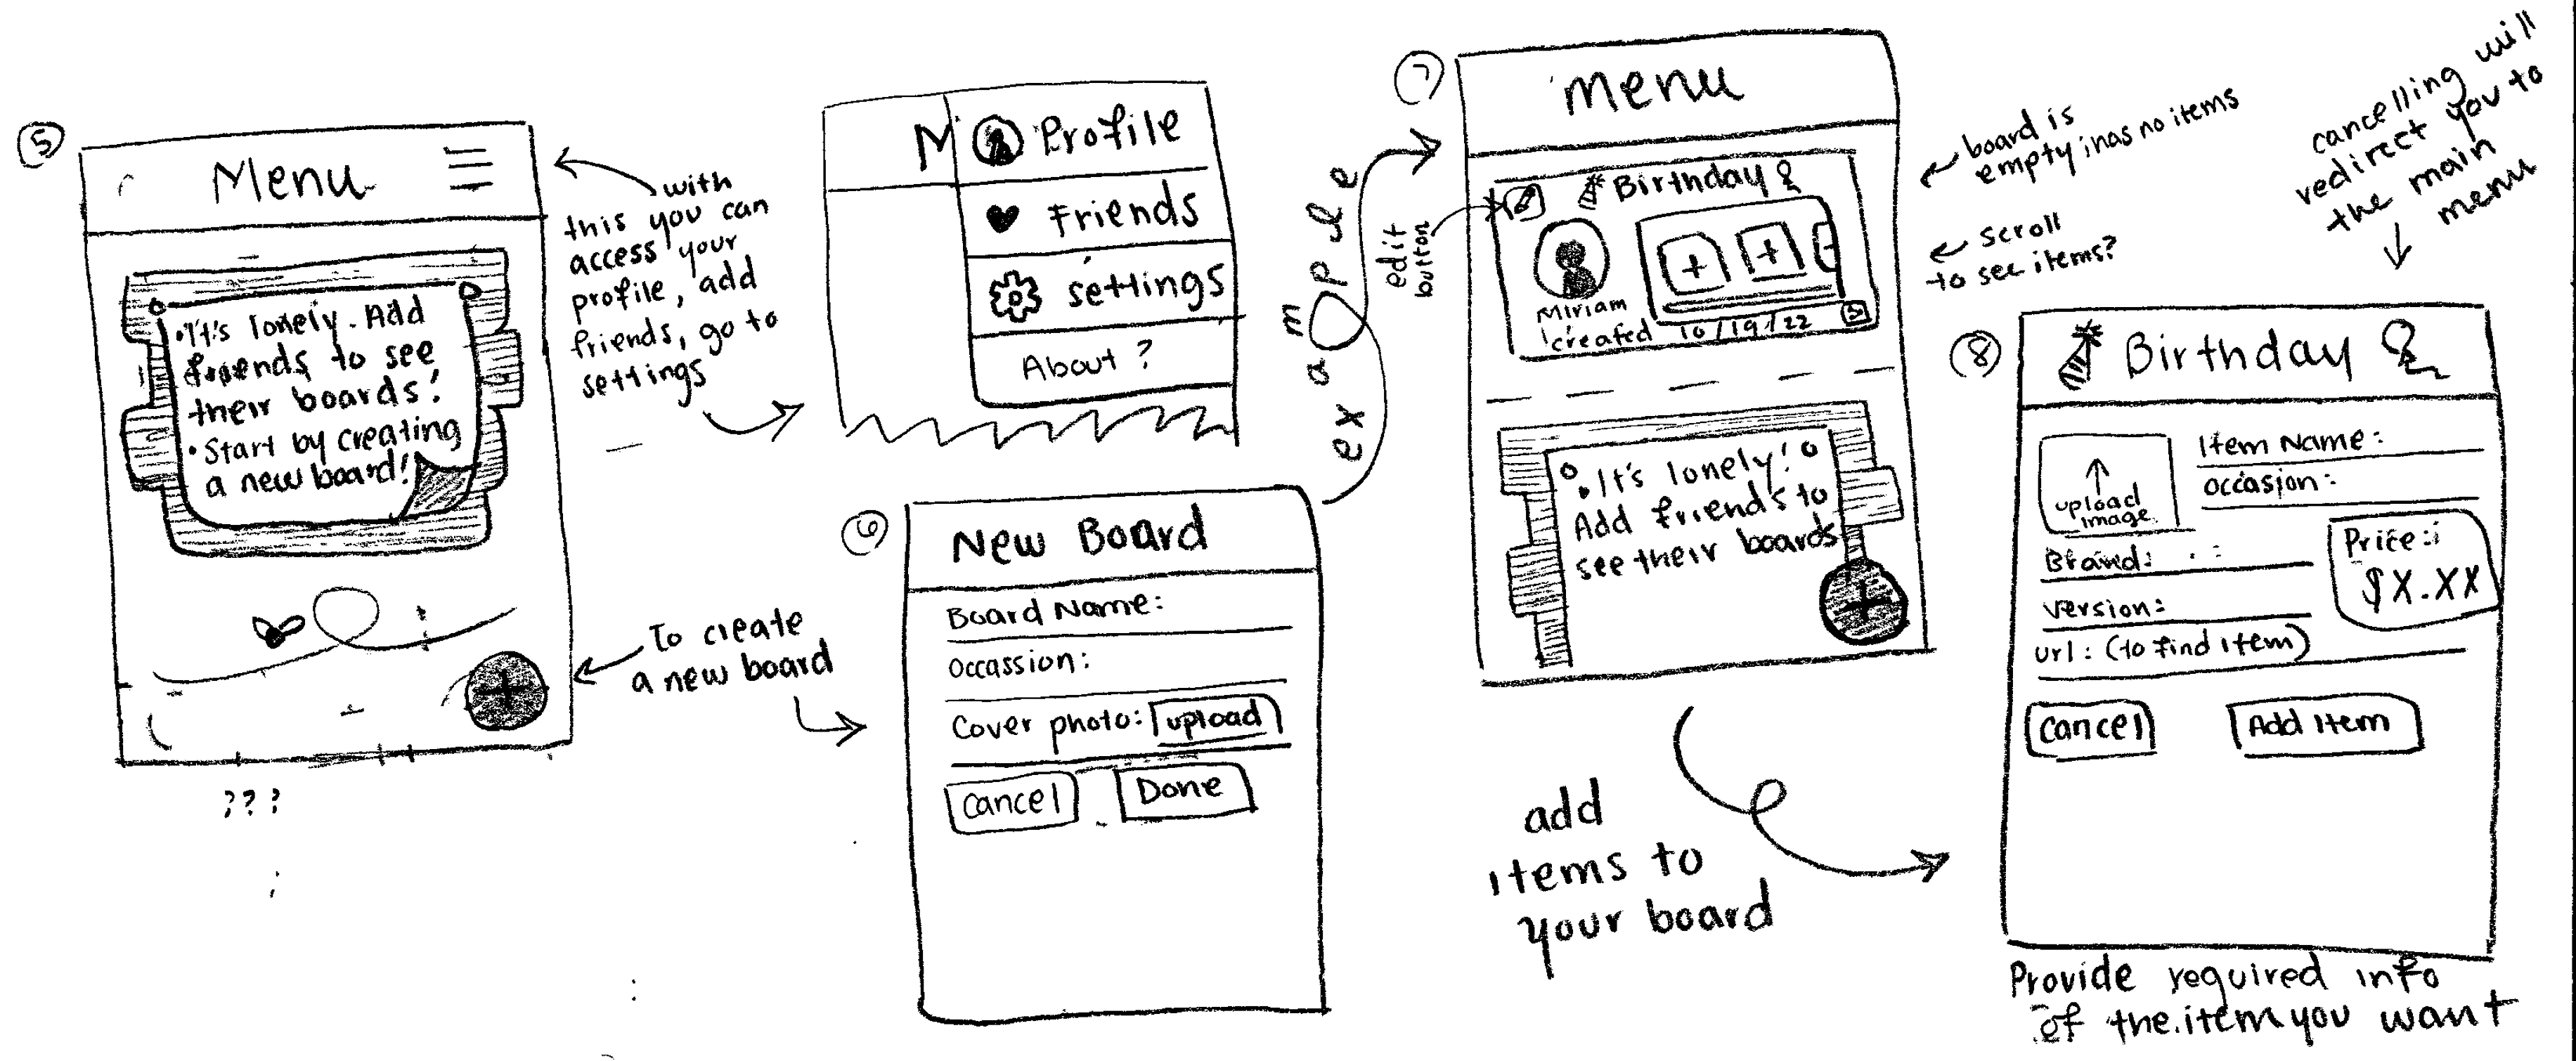 5
Menu
•It's lonely. Add
friends to see
their boards!
• Start by creating
a new board!
???
with
this you can
access your
profile, add
friends, go to
settings
To create
a new board
M
Profile
Friends
settings
About ?
6
New Board
Board Name:
Occassion:
Cover photo: upload
Cancel
Done
example
7
Menu
edit
button
Birthday
+ +
Miriam
created 10/19/22
• It's lonely!
Add friends to
see their boards
+
board is
empty; has no items
scroll
to see items?
add
items to
your board
cancelling will
redirect you to
the main
menu
8
Birthday
upload
image
Item Name:
Occasion:
Brand:
Version:
Price:
$X.XX
url: (to find item)
Cancel
Add Item
Provide required info
of the item you want